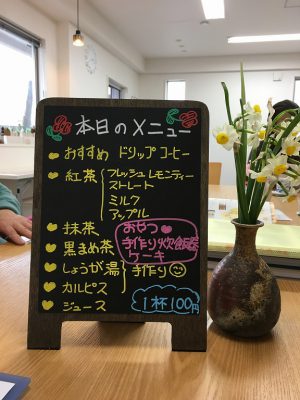 本日のメニュー
おすすめ ドリップコーヒー
紅茶 フレッシュレモンティー
ストレート
ミルク
アップル
抹茶
黒まめ茶
しょうが湯 手作り
カルピス
ジュース
おやつ
手作り炊飯器
ケーキ
1杯100円